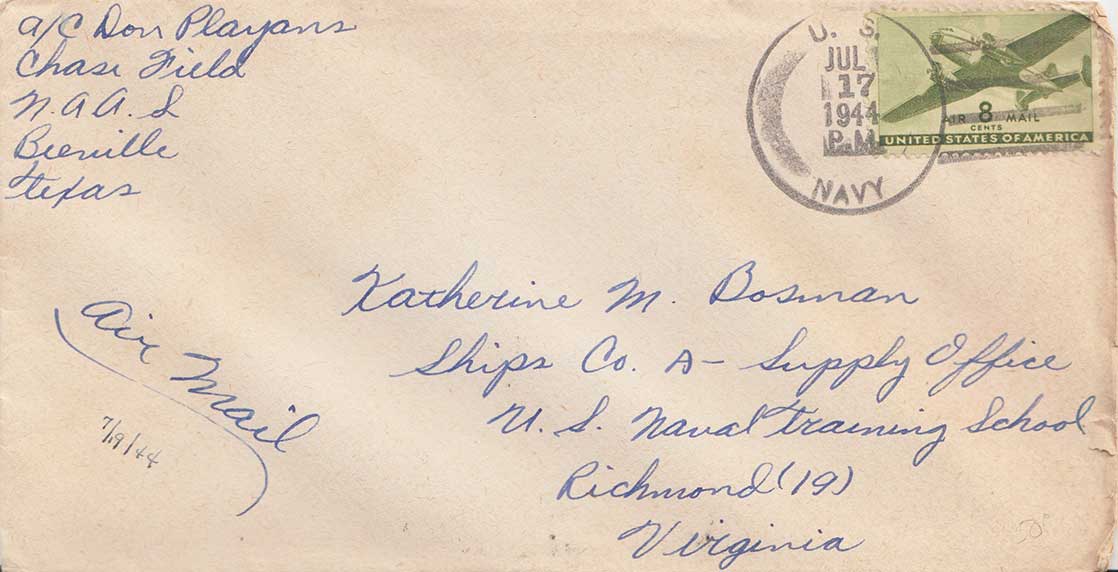 a/C Don Playans
Chase Field
N.A.A.S
Beeville
Texas
U. S.
JUL
17
1944
P.M.
NAVY
AIR 8 MAIL
CENTS
UNITED STATES OF AMERICA
Katherine M. Bosman
Ships Co. A- Supply Office
U. S. Naval Training School
Richmond (19)
Virginia
Air Mail
7/19/44